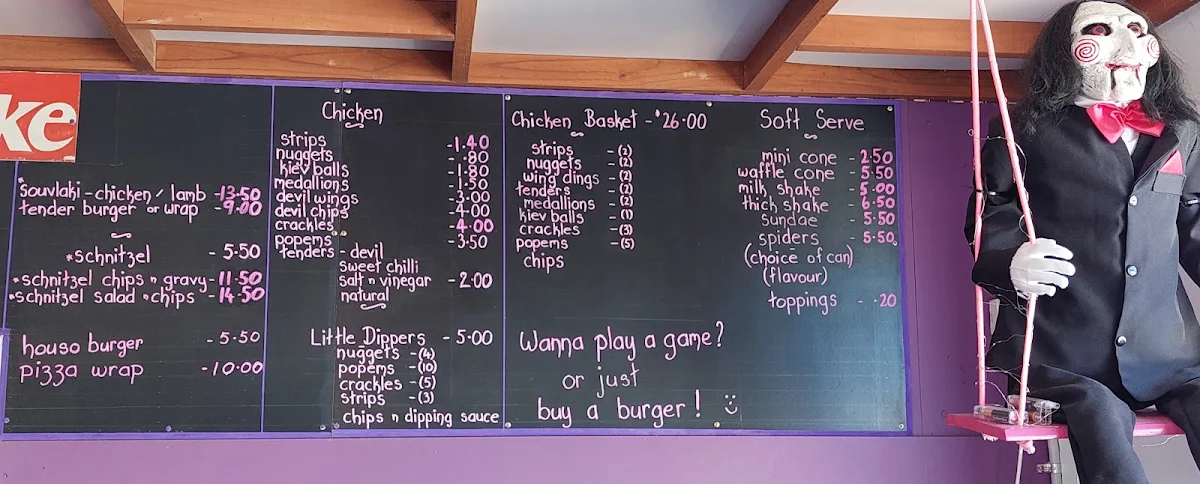 ke
*souvlaki - chicken / lamb - 13.50
tender burger or wrap - 9.00
*schnitzel - 5.50
*schnitzel chips n gravy - 11.50
*schnitzel salad n chips - 14.50
houso burger - 5.50
pizza wrap - 10.00
Chicken
strips - 1.40
nuggets - .80
kiev balls - 1.80
medallions - 1.50
devil wings - 3.00
devil chips - 4.00
crackles - 4.00
popems - 3.50
tenders - devil
sweet chilli
salt n vinegar - 2.00
natural
Little Dippers - 5.00
nuggets - (4)
popems - (10)
crackles - (5)
strips - (3)
chips n dipping sauce
Chicken Basket - $26.00
strips - (2)
nuggets - (2)
wing dings - (2)
tenders - (2)
medallions - (2)
kiev balls - (1)
crackles - (3)
popems - (5)
chips
Wanna play a game?
or just
buy a burger!
Soft Serve
mini cone - 2.50
waffle cone - 5.50
milk shake - 5.00
thick shake - 6.50
sundae - 5.50
spiders - 5.50
(choice of can)
(flavour)
toppings - .20